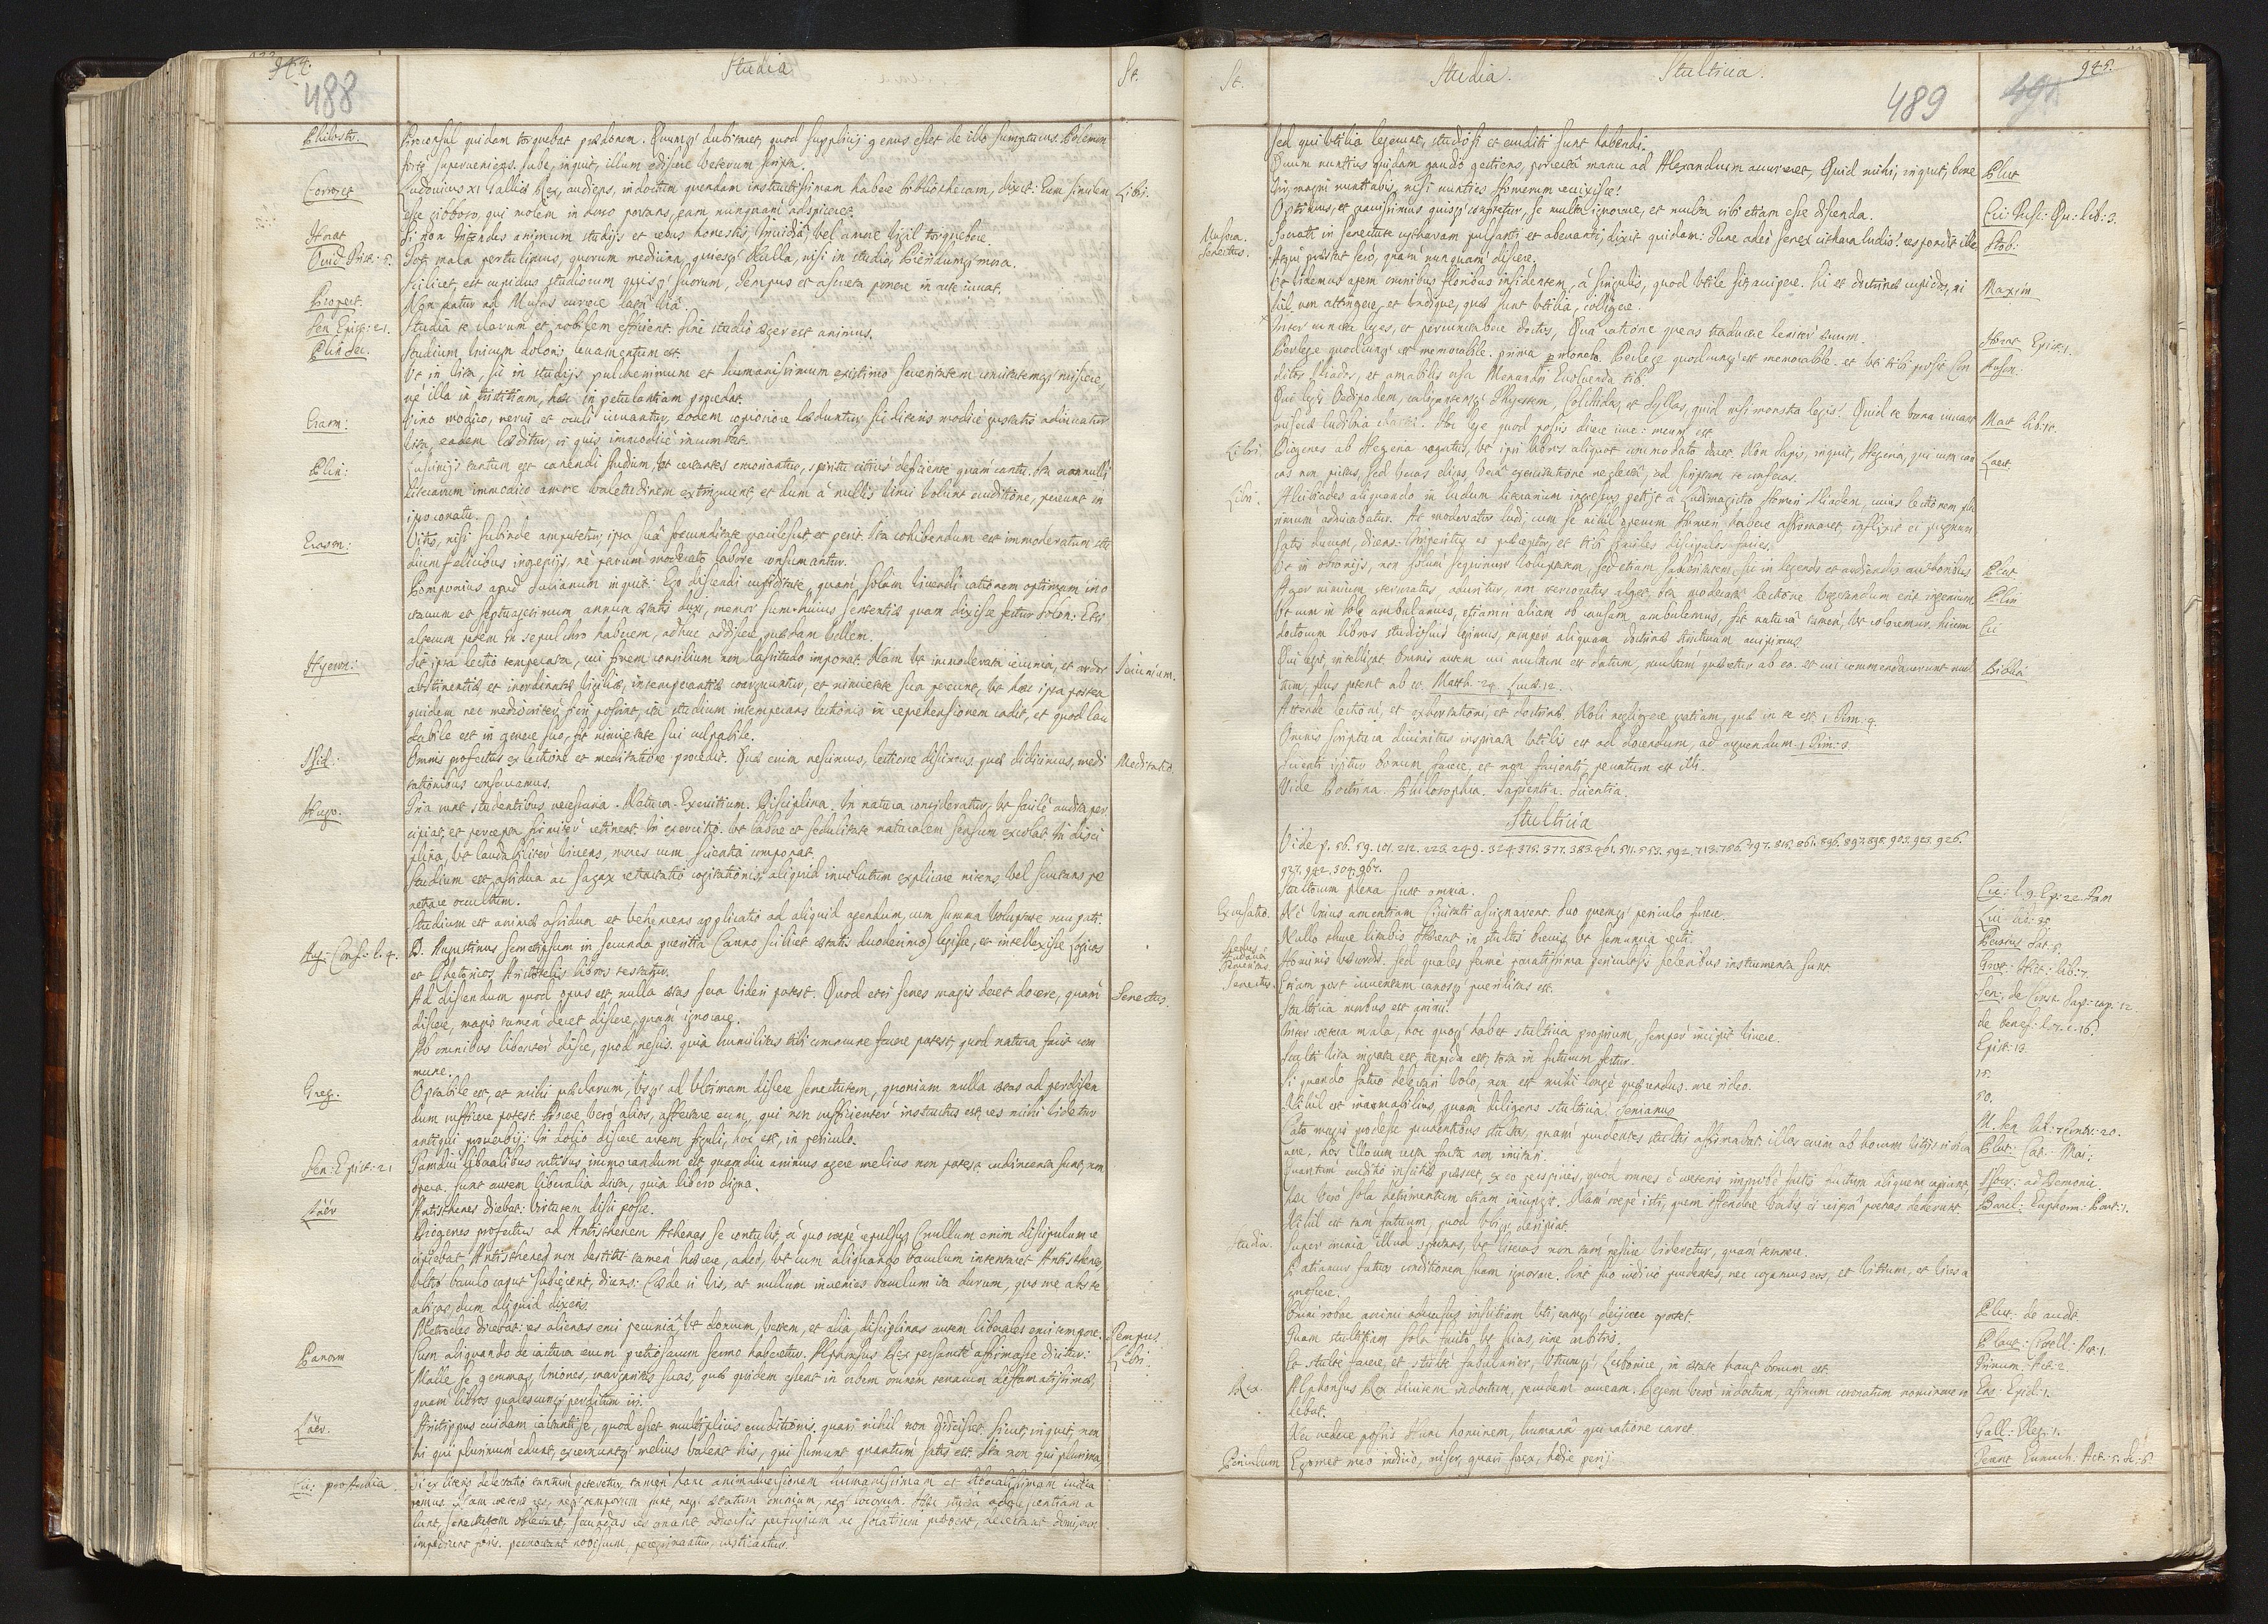 944.
488
Studia
St.
Philostr. Proconsul quidam torquebat prædonem. Quumq; dubitaret, quod supplicij genus esset de illo sumpturus. Polemon
forte superveniens. Jube, inquit, illum ediscere veterum scripta.
Corrozet Ludovicus XI Galliæ Rex, audiens, indoctum quendam instructissimam habere bibliothecam, dixit: Eum similem Libri.
esse gibboso, qui molem in dorso portans, eam nunquam adspiceret.
Horat Si non intendes animum studijs et rebus honestis, invidiâ vel amore vigil torquebere.
Ovid Trist: 5. Tot mala pertulimus, quorum medicina, quiesq; Nulla, nisi in studio, Pieridumq; mora.
Scilicet est cupidus studiorum quisq; suorum, Tempus et assueta ponere in arte iuvat.
Propert. Non datur ad Musas currere lata via.
Sen Epist: 21. Studia te clarum et nobilem efficient. Sine studio æger est animus.
Plin Sec. Studium unicum doloris levamentum est.
Ut in vita, sic in studijs pulcherrimum et humanissimum existimo severitatem comitatemq; miscere,
ne illa in tristitiam, hæc in petulantiam procedat.
Erasm: Vino modico, nervi et oculi iuvantur, eodem copiosiore læduntur, sic literis modicè gustatis adiuvatur
vita, eadem læditur, si quis immodicè incumbat.
Plin: Luscinijs tantum est canendi studium, ut certantes emoriantur, spiritu citius deficiente quam cantu. Ita nonnulli
literarum immodico amore valetudinem extinguunt, et dum à nullis vinci volunt eruditione, pereunt in
ipso conatu.
Erasm: Vitis, nisi subinde amputetur, ipsa suâ fecunditate gracilescit et perit. Ita cohibendum est immoderatum stu
dium felicibus ingenijs, nè parum moderato labore consumantur.
Pomponius apud Julianum inquit: Ego discendi cupiditate, quam solam vivendi rationem optimam in o
ctavum et septuagesimum annum ætatis duxi, memor sum huius sententiæ quam dixisse fertur Solon: Etsi
alterum pedem in sepulchro haberem, adhuc addiscere quædam vellem.
Hyeron: Sit ipsa lectio temperata, cui finem consilium non lassitudo imponat. Nam ut immoderata ieiunia, et Ieiunium.
abstinentiæ et inordinatæ vigiliæ, intemperantiæ coarguuntur, et nimietate sua pereunt, ut hæc ipsa postea
quidem nec mediocriter fieri possint, ita studium intemperans lectionis in reprehensionem cadit, et quod lau
dabile est in genere suo, fit nimietate sui culpabile.
Isid: Omnis profectus ex lectione et meditatione procedit. Quæ enim nescimus, lectione discimus. quæ didicimus, medi Meditatio.
tationibus conservamus.
Hugo. Tria sunt studentibus necessaria. Natura. Exercitium. Disciplina. In natura consideratur, ut facilè audita per
cipiat, et percepta firmiter retineat. In exercitio. ut labore et sedulitate naturalem sensum excolat. In disci
plina, ut laudabiliter vivens, mores cum scientia componat.
Studium est assidua ac sagax retractatio cogitationis, aliquid involutum explicare nitens, vel scrutans pe
netrare occultum.
Studium est animæ assidua et vehemens applicatio ad aliquid agendum, cum summa voluptate occupati.
Aug: Conf: l. 4. D. Augustinus semetipsum in secunda pueritia (anno scilicet ætatis duodecimo) legisse, et intellexisse Logicos
et Rhetoricos Aristotelis libros testatur.
Ad discendum quod opus est, nulla ætas sera videri potest. Quod etsi senes magis decet docere, quam Senectus.
discere, magis tamen decet discere, quam ignorare.
Ab omnibus libenter disce, quod nescis. quia humilitas tibi commune facere potest, quod natura fecit com
mune.
Greg. Optabile est, et mihi præclarum, usq; ad ultimam discere senectutem, quoniam nulla ætas ad perdiscen
dum sufficere potest. Docere vero alios, affectare eum, qui non sufficienter instructus est, res mihi videtur
antiqui proverbij: in dolio discere artem figuli, hoc est, in periculo.
Sen: Epist: 21 Tamdiu liberalibus artibus immorandum est quamdiu animus agere melius non potest. rudimenta sunt, non
opera. Sunt autem liberalia dicta, quia libero digna.
Laër Antisthenes dicebat: Virtutem disci posse.
Diogenes profectus ad Antisthenem Athenas se contulit, à quo sæpe repulsus (nullum enim discipulum re
cipiebat Antisthenes) non destitit tamen hærere, adeò, ut cum aliquando baculum intentaret Antisthenes,
ultro baculo caput subijceret, dicens: Cæde si vis, at nullum invenies baculum ita durum, quo me abs te
abigas, dum aliquid dixeris.
Metrocles dicebat: res alienas emi pecuniâ, ut domum, vestem, et alia, disciplinas autem liberales emi tempore. Tempus.
Panorm Cum aliquando de iactura rerum pretiosarum sermo haberetur. Alphonsus Rex persanctè affirmasse dicitur: Libri.
Malle se gemmas, Uniones, margaritas suas, quæ quidem essent in orbem omnem terrarum æstimatissimæ,
quam libros qualescunq; perditum iri.
Laër. Aristippus cuidam iactanti se, quod esset multiplicis eruditionis, quasi nihil non didicisset. Sicut, inquit, non
hi qui plurimum edunt, et excernunt, melius valent his, qui sumunt quantum satis est. Ita non qui plurima
Cic: pro Archia. Si ex literis delectatio tantum peteretur, tamen hanc animadversionem humanissimam et liberalissimam iudica
remus. Nam cæteræ res, neq; temporum sunt, neq; ætatum omnium, neq; locorum. Hæc studia adolescentiam a
lunt, senectutem oblectant, secundas res ornant, adversis perfugium ac solatium præbent, delectant domi, non
impediunt foris. pernoctant nobiscum, peregrinantur, rusticantur.
St.
Studia. Stultitia.
489
491
945.
sed qui utilia legerunt, studiosi et eruditi sunt habendi.
Quum nuntius quidam gaudio gestiens, porrecta manu ad Alexandrum accurreret, Quid mihi, inquit, bone Plut
vir, magni nuntiabis, nisi nunties Homerum revixisse!
Optimus, et gravissimus quisq; confitetur, se multa ignorare, et multa sibi etiam esse discenda. Cic: Tusc: Qu: lib: 3.
Musica. Senectus. Socrati in senectute cytharam pulsanti et aberranti, dixit quidam: Tune adeò senex cithara ludis! respondit ille Stob:
Atqui præstat serò, quàm nunquam discere.
Ut videmus apem omnibus floribus insidentem, à singulis, quod utile sit, accipere. Sic et doctrinæ cupidos, ni Maxim
hil non attingere, et undique, quæ sunt utilia, colligere.
Inter cuncta leges, et percunctabere doctos, Qua ratione queas traducere leniter ævum. Horat Epist: 1.
Perlege quodcunq; est memorabile. prima monebo. Perlege quodcunq; est memorabile. et ut tibi prosit Con Auson:
ditor Iliados, et amabilis orsa Menandri Evolvenda tibi.
Qui legis Oedipodem, caligantemq; Thyestem, Colchidas, et Scyllas, quid nisi monstra legis! Quid te vana iuvant Mart lib: 10.
miseræ ludibria chartæ! Hoc lege quod possis dicere iure: meum est.
Libri. Diogenes ab Hegesia rogatus, ut ipsi libros aliquot commodato daret. Non sapis, inquit, Hegesia, qui cum cari Laert.
cas non pictas, sed veras eligas, vera exercitatione neglecta, ad scriptum te conferas.
Libri. Alcibiades aliquando in ludum literarium ingressus petijt à Ludimagistro Homeri Iliadem, cuius lectionem plu
rimum admirabatur. At moderator ludi, cum se nihil operum Homeri habere affirmaret, inflixit ei pugnum
satis durum, dicens: Imperitus es præceptor, et tibi similes discipulos facies.
Ut in obsonijs, non solum sequimur voluptatem, sed etiam salubritatem, sic in legendis et audiendis authoribus Plut
Ager nimium stercoratus aduritur, non stercoratus alget. Ita moderata lectione vegetandum est ingenium Plin
Ut cum in sole ambulamus, etiamsi aliam ob causam ambulemus, fit natura tamen, ut coloremur, sic cum Cic
doctorum libros studiosius legimus, semper aliquam doctrinæ tincturam accipimus.
Qui legit, intelligat. Omnis autem cui multum est datum, multum quæretur ab eo. et cui commendaverunt mul Biblia
tum, plus petent ab eo. Matth. 24. Luc. 12.
Attende lectioni, et exhortationi, et doctrinæ. Noli negligere gratiam, quæ in te est. 1. Tim. 4.
Omnis scriptura divinitus inspirata utilis est ad docendum, ad arguendum. 1. Tim: 3.
Scienti igitur bonum facere, et non facienti, peccatum est illi.
Vide Doctrina. Philosophia. Sapientia. Scientia.
Stultitia
Vide p. 56. 59. 101. 212. 223. 249. 324. 375. 377. 383. 461. 511. 553. 592. 713. 756. 797. 815. 861. 896. 897. 898. 903. 923. 926.
937. 942. 304. 967.
Stultorum plena sunt omnia. Cic: l. 9. Ep: 22 Fam
Excusatio. Nè unius amentiam Civitati assignarent. Suo quemq; periculo furere. Liv: lib: 35.
Nullo thure litabis Hæreat in stultis brevis ut semuncia recti. Persius Sat. 5.
Hominis vecordis. sed quales fermè paratissima periculosis sceleribus instrumenta sunt. Grot: Hist: lib: 7.
Senectus. Etiam post iuventam canosq; puerilitas est. Sen: de Const. Sap: cap: 12.
Stultitia morbus est animi. de benef: l. 2. c. 16.
Inter cætera mala, hoc quoq; habet stultitia proprium, semper incipit vivere. Epist: 13.
Stulti vita ingrata est, trepida est, tota in futurum fertur. 15.
Si quando fatuo delectari volo, non est mihi longè quærendus. me rideo. 50.
Nihil est inæstimabilius, quam diligens stultitia. Senianus M. Sen lib: 7 Contr: 20.
Cato magis prodesse prudentibus stultos, quàm prudentes stultis affirmabat, illos enim ab horum vitijs Plut: Cat: Mai:
, hos illorum recte facta non imitari.
Quantum eruditio inscitiæ præstet, ex eo perspicies, quod omnes è cæteris improbè factis fructum aliquem capiunt, Isocr: ad Demonic.
hæc verò sola detrimentum etiam iniungit. Nam sæpe isti, quem offendere verbis, ei reipsa poenas dederunt. Barcl: Euphorm: Part: 1.
Nihil est tam fatuum, quod ubiq; desipiat.
Studia. Super omnia illud optimus, ut literas non tam nescire videretur, quàm temnere.
Patiamur fatuos conditionem suam ignorare. Sint suo iudicio prudentes, nec cogamus eos, et vitium, et vires a
gnoscere.
Omni robore animi adversus inscitiam uti, eamq; deijcere oportet. Plut. de audit.
Quam stultitiam sola facito ut scias, sine arbitris. Plaut: Cistell: Act: 1.
Et stultè facere, et stultè fabularier, Utrumq; Lesbonice, in ætate haut bonum est. Trinum. Act: 2.
Rex. Alphonsus Rex divitem indoctum, pecudem auream. Regem verò indoctum, asinum coronatum nominare so Ens: Epid: 1.
lebat.
Nec credere possis Hunc hominem, humanâ qui ratione caret. Gall: Eleg: 1.
Periculum Egomet meo indicio, miser, quasi sorex, hodie perij. Terent Eunuch: Act: 5. Sc: 6